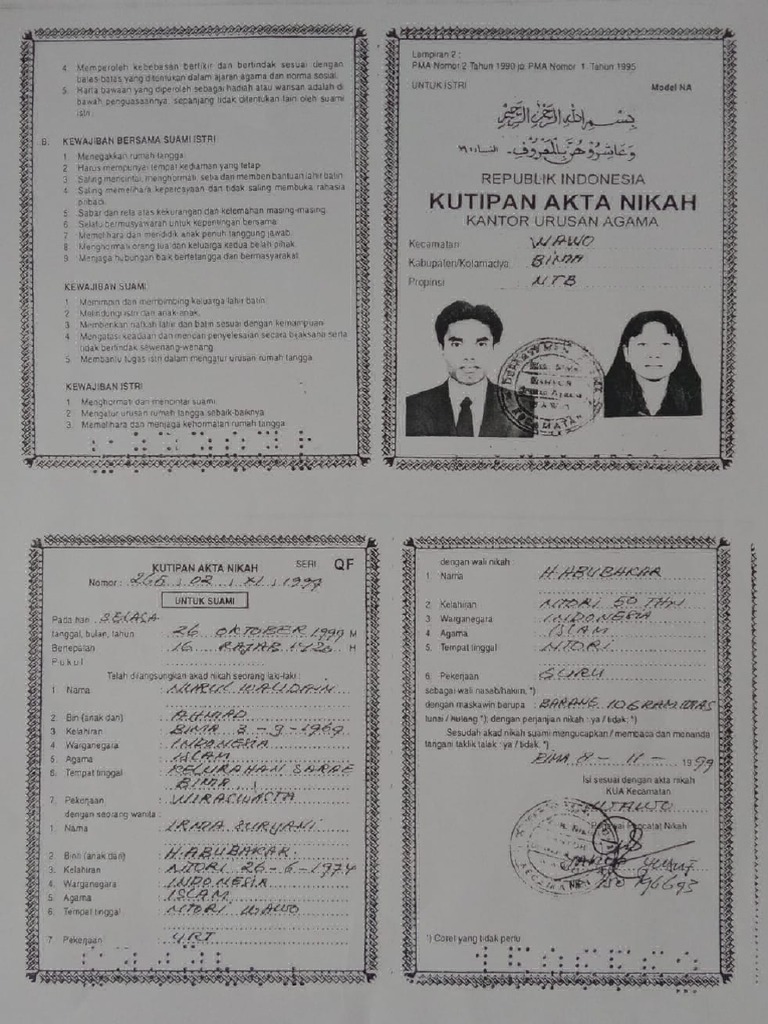 4. Memperoleh kebebasan berfikir dan bertindak sesuai dengan
batas-batas yang ditentukan dalam ajaran agama dan norma sosial.
5. Harta bawaan yang diperoleh sebagai hadiah atau warisan adalah di
bawah penguasaannya, sepanjang tidak ditentukan lain oleh suami
istri.
B. KEWAJIBAN BERSAMA SUAMI ISTRI
1. Menegakkan rumah tangga.
2. Harus mempunyai tempat kediaman yang tetap.
3. Saling mencintai, menghormati, setia dan memberi bantuan lahir batin.
4. Saling memelihara kepercayaan dan tidak saling membuka rahasia
pribadi.
5. Sabar dan rela atas kekurangan dan kelemahan masing-masing.
6. Selalu bermusyawarah untuk kepentingan bersama.
7. Memelihara dan mendidik anak penuh tanggung jawab.
8. Menghormati orang tua dan keluarga kedua belah pihak.
9. Menjaga hubungan baik bertetangga dan bermasyarakat.
KEWAJIBAN SUAMI
1. Memimpin dan membimbing keluarga lahir batin.
2. Melindungi istri dan anak-anak.
3. Memberikan nafkah lahir dan batin sesuai dengan kemampuan.
4. Mengatasi keadaan dan mencari penyelesaian secara bijaksana serta
tidak bertindak sewenang-wenang.
5. Membantu tugas istri dalam mengatur urusan rumah tangga.
KEWAJIBAN ISTRI
1. Menghormati dan mencintai suami.
2. Mengatur urusan rumah tangga sebaik-baiknya.
3. Memelihara dan menjaga kehormatan rumah tangga.
Lampiran 2 :
PMA Nomor 2 Tahun 1990 jo PMA Nomor 1 Tahun 1995
UNTUK ISTRI Model NA
بسم الله الرحمن الرحيم
وعاشروهن بالمعروف. النساء ١٩
REPUBLIK INDONESIA
KUTIPAN AKTA NIKAH
KANTOR URUSAN AGAMA
Kecamatan WAWO
Kabupaten/Kotamadya BIMA
Propinsi NTB
KUTIPAN AKTA NIKAH SERI QF
Nomor : 02 XI 1999
UNTUK SUAMI
Pada hari SELASA
tanggal, bulan, tahun 26 OKTOBER 1999 M
Bertepatan 16 RAJAB 1420 H
Pukul
Telah dilangsungkan akad nikah seorang laki-laki :
1. Nama NURUL WALIDAIN
2. Bin (anak dari) AHMAD
3. Kelahiran BIMA 3 - 9 - 1969
4. Warganegara INDONESIA
5. Agama ISLAM
6. Tempat tinggal KELURAHAN SARAE
BIMA
7. Pekerjaan WIRASWASTA
dengan seorang wanita :
1. Nama IRMA SURYANI
2. Binti (anak dari) H. ABUBAKAR
3. Kelahiran NTORI 26 - 6 - 1974
4. Warganegara INDONESIA
5. Agama ISLAM
6. Tempat tinggal NTORI WAWO
7. Pekerjaan URT
dengan wali nikah :
1. Nama H. ABUBAKAR
2. Kelahiran NTORI 50 THN
3. Warganegara INDONESIA
4. Agama ISLAM
5. Tempat tinggal NTORI
6. Pekerjaan GURU
sebagai wali nasab/hakim. *)
dengan maskawin berupa BARANG 10 GRAM EMAS
tunai / hutang *); dengan perjanjian nikah : ya / tidak; *)
Sesudah akad nikah suami mengucapkan / membaca dan menanda
tangani taklik talak : ya / tidak. *)
BIMA 8 - 11 - 1999
Isi sesuai dengan akta nikah
KUA Kecamatan
WAWO
Pegawai Pencatat Nikah
YUSUF
*) Coret yang tidak perlu